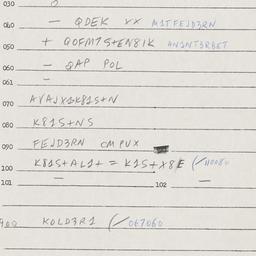 030
040 — QDEK XX M1TFEJD3RN
050 + QOFM7S+EN8IK AN1NT3RBET
060 — QAP POL
061 —
070 AYAJX1K81S+N
080 K81S+NS
090 FEJD3RN CMPUX
100 K81S+AL1+ = K1S+X8E (/110080
101 — 102 —
KOLD3R1 (/067060